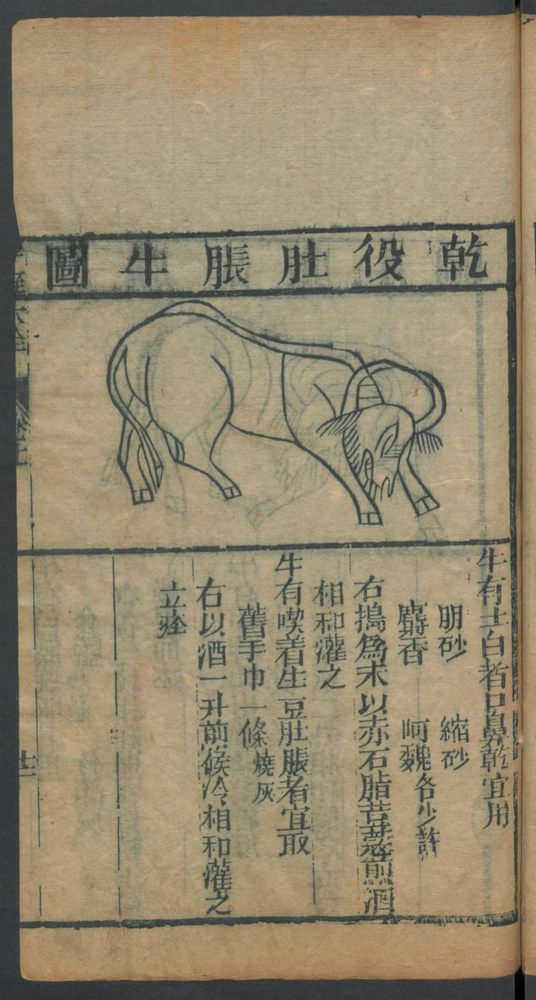 乾役肚脹牛圖
牛有土白者口鼻乾宜用
明砂 縮砂
麝香 阿魏各少許
右搗爲末以赤石脂苦蔘煎酒
相和灌之
牛有喫着生豆肚脹者宜取
舊手巾一條燒灰
右以酒一升煎候冷相和灌之
立痊